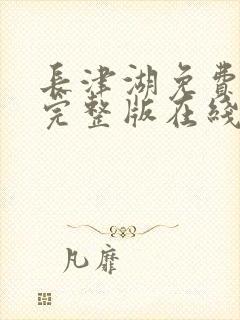 長津湖免費
完整版在綫
凡靡